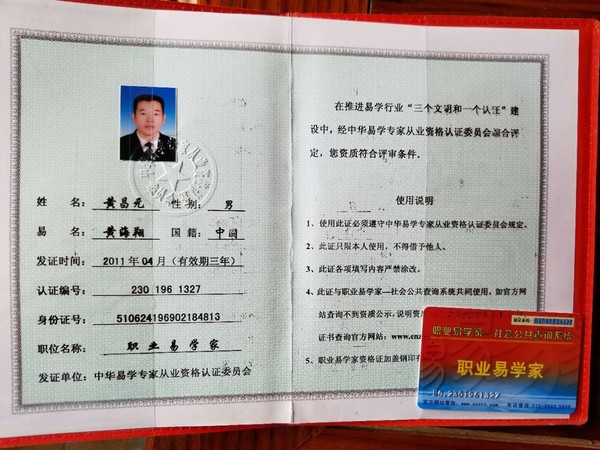 姓 名：黄昌元 性 别：男
易 名：黄海翔 国 籍：中国
发证时间：2011年04月（有效期三年）
认证编号：230 196 1327
身份证号：510624196902184813
职位名称：职业易学家
发证单位：中华易学专家从业资格认证委员会
在推进易学行业“三个文明和一个认证”建
设中，经中华易学专家从业资格认证委员会综合评
定，您资质符合评审条件。
使用说明
1、使用此证必须遵守中华易学专家从业资格认证委员会规定。
2、此证只限本人使用，不得借予他人。
3、此证各项填写内容严禁涂改。
4、此证与职业易学家—社会公共查询系统共同使用，如官方网
站查询不到资质公示，说明资
证书查询官方网站：www.cnz
5、职业易学家资格证加盖钢印有
职业易学家—社会公共查询系统
职业易学家
NO.2301961327